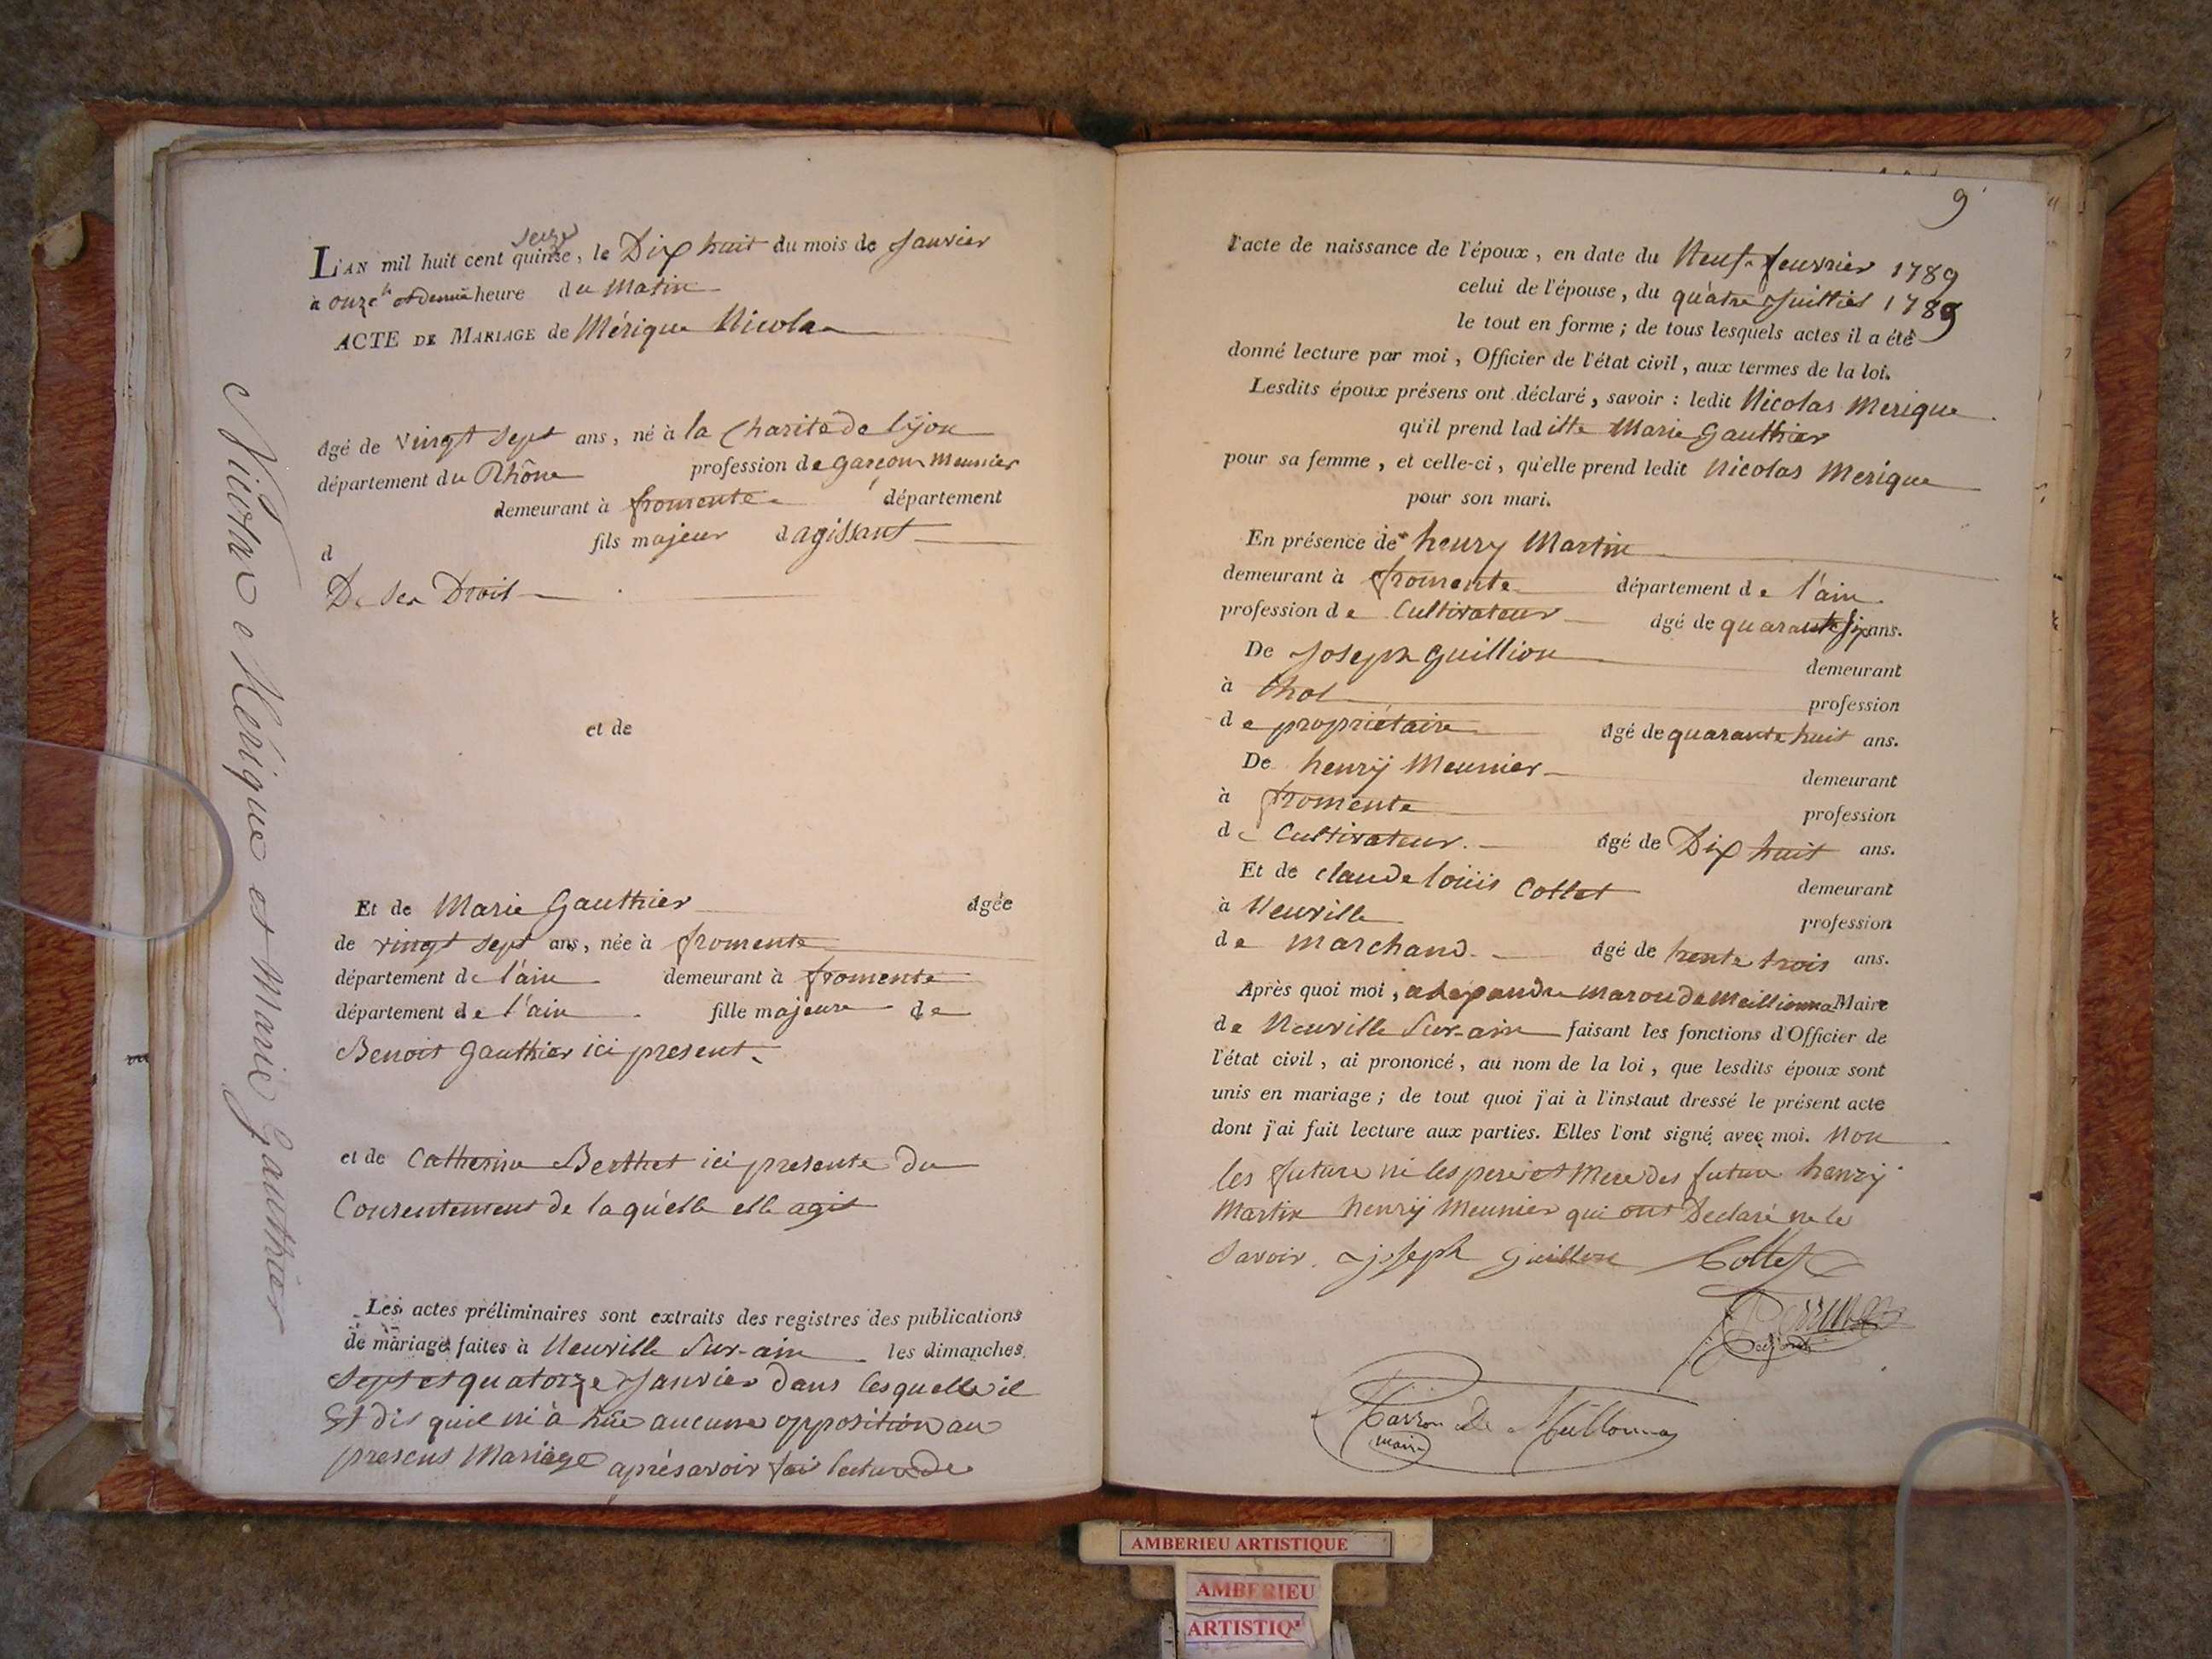 Nicolas Mérique et Marie Gauthier
seize
L'AN mil huit cent quinze, le Dix huit du mois de Janvier
à onze h et demie heure du Matin
ACTE DE MARIAGE de Mérique Nicolas
âgé de vingt sept ans, né à la Charité de lÿon
département du Rhône profession de garçon meunier
demeurant à fromente département
d fils majeur d agissant
De ses Droit
et de
Et de Marie Gauthier âgée
de vingt sept ans, née à fromente
département de l'ain demeurant à fromente
département de l'ain fille majeure de
Benoit Gauthier ici present
et de Catherine Berthet ici presente du
Consentement de laquelle elle agit
Les actes préliminaires sont extraits des registres des publications
de mariage faites à Neuville Sur-ain les dimanches
Sept et quatorze Janvier dans lesquelle il
Est dis quil ni à hüe aucune opposition au
presens Mariage aprés avoir fai lecture de
9
l'acte de naissance de l'époux, en date du Neuf feuvrier 1789
celui de l'épouse, du quatre Juillies 1789
le tout en forme; de tous lesquels actes il a été
donné lecture par moi, Officier de l'état civil, aux termes de la loi.
Lesdits époux présens ont déclaré, savoir: ledit Nicolas Merique
qu'il prend lad itte Marie Gauthier
pour sa femme, et celle-ci, qu'elle prend ledit Nicolas Merique
pour son mari.
En présence de henry Martin
demeurant à fromente département de l'ain
profession de Cultivateur âgé de quarante six ans.
De Joseph Guillion demeurant
à thol profession
de propriétaire âgé de quarante huit ans.
De henrÿ Meunier demeurant
à fromente profession
de Cultivateur. âgé de Dix huit ans.
Et de claude loüis Collet demeurant
à Neuville profession
de marchand. âgé de trente trois ans.
Après quoi moi, alexandre maron de Meillionna Maire
de Neuville Sur-ain faisant les fonctions d'Officier de
l'état civil, ai prononcé, au nom de la loi, que lesdits époux sont
unis en mariage; de tout quoi j'ai à l'instaut dressé le présent acte
dont j'ai fait lecture aux parties. Elles l'ont signé avec moi. Non
les future ni les pere et Mere des future henrÿ
Martin henrÿ Meunier qui ont Declaré ne le
Savoir. joseph guillon Collet
Marron De Meillonnas
maire
AMBERIEU ARTISTIQUE
AMBERIEU
ARTISTIQ